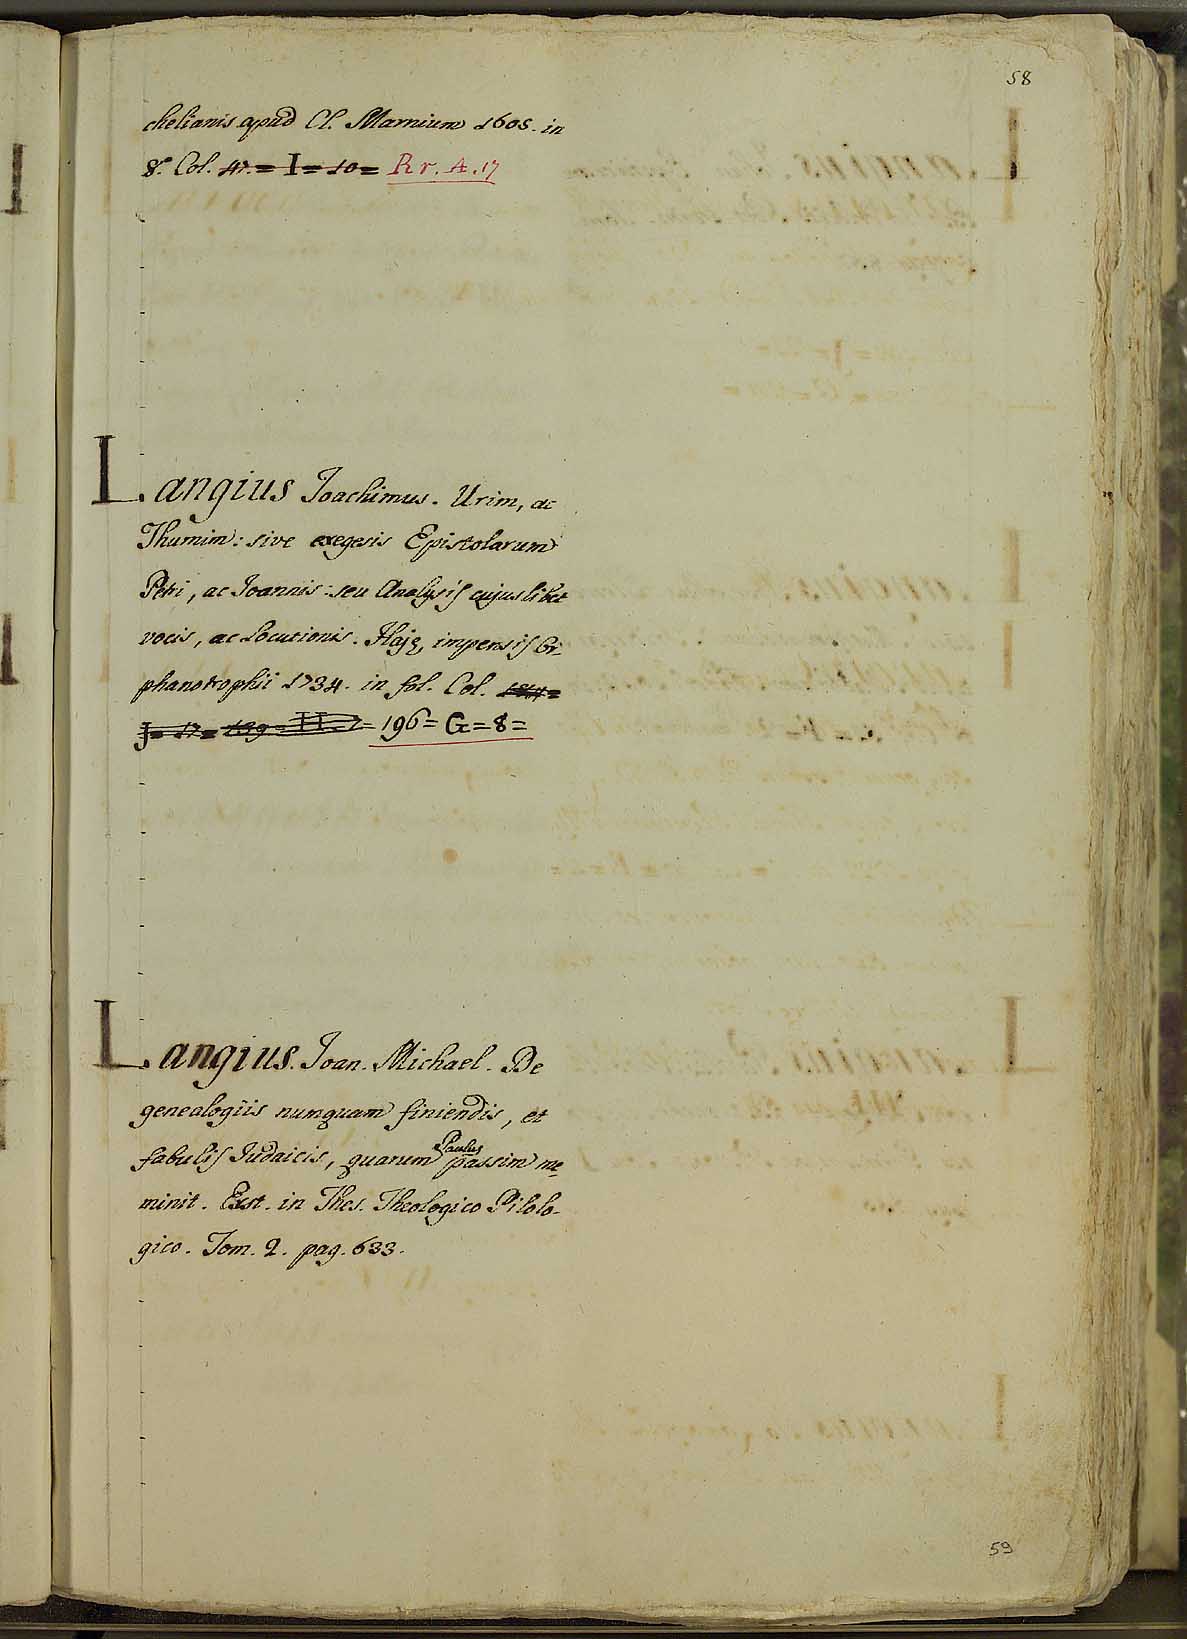 58
chelianis apud Cl. Marnium 1605. in
8.° Col. 47. = I = 10 = Rr. A. 17
Langius Joachimus. Urim, ac
Thumim: sive exegesis Epistolarum
Petri, ac Joannis: seu Analysis cujuslibet
vocis, ac Locutionis. Haję, impensis Or-
phanotrophii 1734. in fol. Col.
J = 17 = 189 = H = 7 = 196 = G = 8 =
Langius. Joan. Michael. De
genealogiis nunquam finiendis, et
fabulis Judaicis, quarum Paulus passim me-
minit. Exst. in Thes. Theologico Pilolo-
gico. Tom. 2. pag. 633.
59